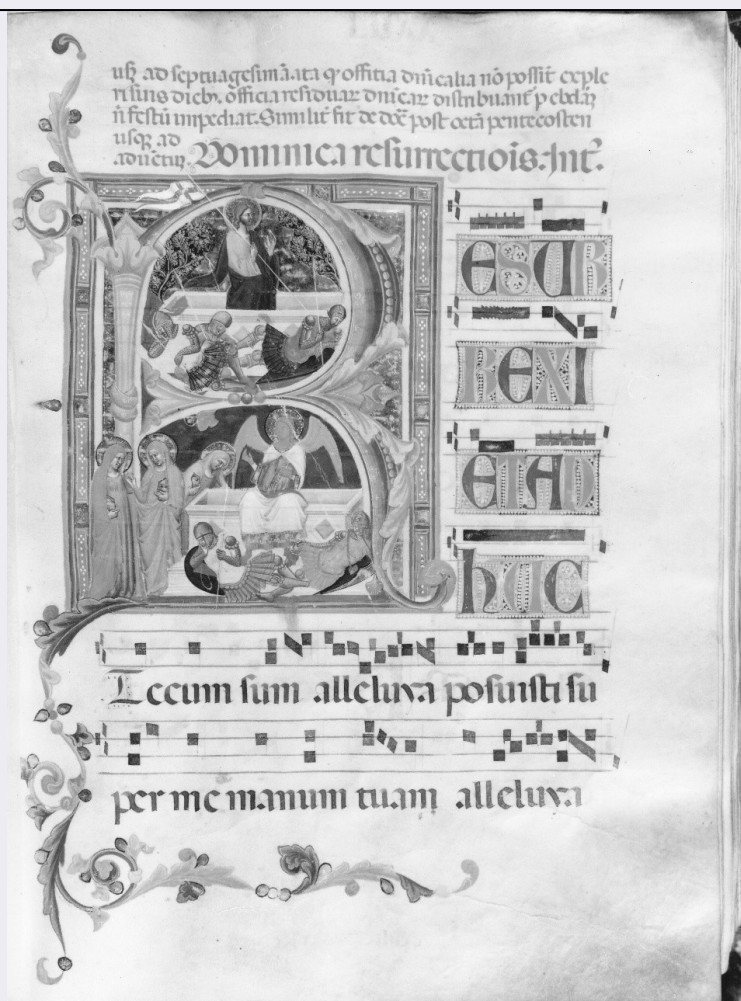 usq ad septuagesimā. ita q̄ offitia dn̄icalia nō possīt exple
ri suis dieb. officia residuar dn̄icar distribuant̄ p ebdāꝫ
n̄ festū impediat. Similit̄ fit de doc̄ post octā pentecosten
usqꝫ ad
aduentū. Dominica resurrectiōis. Int̄.
R ESUR
REXI
ET AD
HUC
Tecum sum alleluya posuisti su
per me manum tuam alleluya